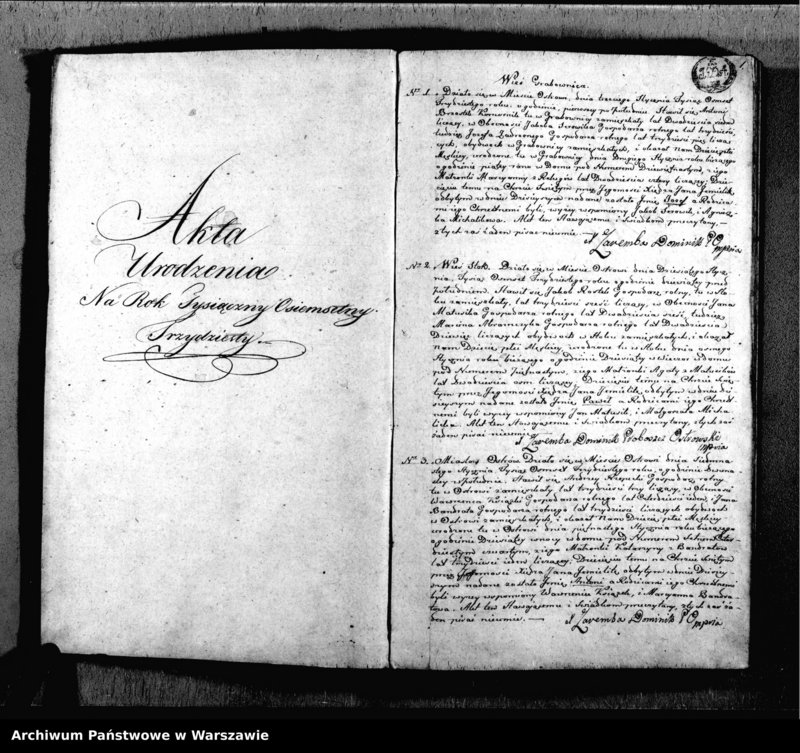 Akta
Urodzenia
Na Rok Tysiączny Osiemsetny
Trzydziesty.
1
Wieś Grabownica.
No 1. Działo się w Mieście Ostrowi, dnia trzeciego Stycznia Tysiąc Osmset
Trzydziestego roku, o godzinie pierwszy po południu. Stawił się Antoni
Brzostek Komornik tu w Grabownicy zamieszkały lat Dwadzieścia siedm
liczący, w Obecności Jakuba Serowika Gospodarza rolnego lat trzydzieści,
tudzież Józefa Gospodarza rolnego lat trzydzieści pięć licza-
cych, obydwóch w Grabownicy zamieszkałych, i okazał nam Dziecię płci
Męskiey, urodzone tu w Grabownicy dnia Drugiego Stycznia roku bieżącego
o godzinie piąty rano w Domu pod Numerem Dziewiętnastym, z iego
Małżonki Maryanny z lat Dwadzieścia cztery liczący; Dzie-
cięciu temu na Chrzcie Świętym przez Jegomości Xiędza Jana Jemielik,
odbytym w dniu Dzisiejszym nadane zostało Jmię Józef a Rodzica-
mi iego Chrzestnemi byli, wyżej wspomniony Jakob Serowik, i Agniesz-
ka Michalikowa. Akt ten Stawaiącemu i Świadkom przeczytany,
z tych zaś żaden pisać nieumie. —
X Zaremba Dominik P O mpria
No 2. Wieś Stok. Działo się w Mieście Ostrowi dnia Dziewiątego Stycz-
nia, Tysiąc Osmset Trzydziestego roku o godzinie dziewiąty przed
południem. Stawił się Jakub Gospodarz rolny, tu w Sto-
ku zamieszkały, lat trzydzieści sześć liczący, w Obecności Jana
Matusika Gospodarza rolnego lat Dwadzieścia sześć, tudzież
Marcina Gospodarza rolnego lat Dwadzieścia
Dziewięć liczących obydwóch w Stoku zamieszkałych, i okazał
nam Dziecię płci Męskiey, urodzone tu w Stoku dnia osmego
Stycznia roku bieżącego o godzinie Dziewiąty w wieczór w domu
pod Numerem Piętnastym, z iego Małżonki Agaty z Matusików
lat Dwadzieścia osm liczący. Dziecięciu temu na Chrzcie Świę-
tym przez Jegomości Xiędza Jana Jemielik, odbytym w dniu dzi-
sieyszym nadane zostało Jmię Paweł a Rodzicami iego Chrzest-
nemi byli wyżej wspomniony Jan Matusik, i Małgorzata Micha-
licka. Akt ten Stawaiącemu i Świadkom przeczytany, z tych zaś
żaden pisać nieumie.
X Zaremba Dominik Proboszcz Ostrowski
mpria
No 3. Miasto Ostrów. Działo się w Mieście Ostrowi dnia Siedmna-
stego Stycznia, Tysiąc Osmset Trzydziestego roku, o godzinie dwuna-
sty w południe. Stawił się Andrzey Gospodarz rolny
tu w Ostrowi zamieszkały, lat trzydzieści trzy liczący, w Obecności
Wawrzeńca Książek Gospodarza rolnego lat Czterdzieści ieden, i Jana
Bandrata Gospodarza rolnego lat trzydzieści liczących obydwóch
w Ostrowi zamieszkałych, i okazał Nam Dziecię płci Męskiey
urodzone tu w Ostrowi dnia piętnastego Stycznia roku bieżącego
o godzinie Dziewiąty w nocy w domu pod Numerem
dziestym czwartym, z iego Małżonki Katarzyny z Bandratów
lat trzydzieści ieden liczący; Dziecięciu temu na Chrzcie Świętym
przez Jegomości Xiędza Jana Jemielik, odbytym w dniu Dzisiey-
szym nadane zostało Jmię Antoni a Rodzicami iego Chrzestnemi
byli wyżej wspomniony Wawrzeniec Książek, i Maryanna Bandra-
towa. Akt ten Stawaiącemu i Świadkom przeczytany, z tych zaś ża-
den pisać nieumie. —
X Zaremba Dominik P O mpria
Archiwum Państwowe w Warszawie